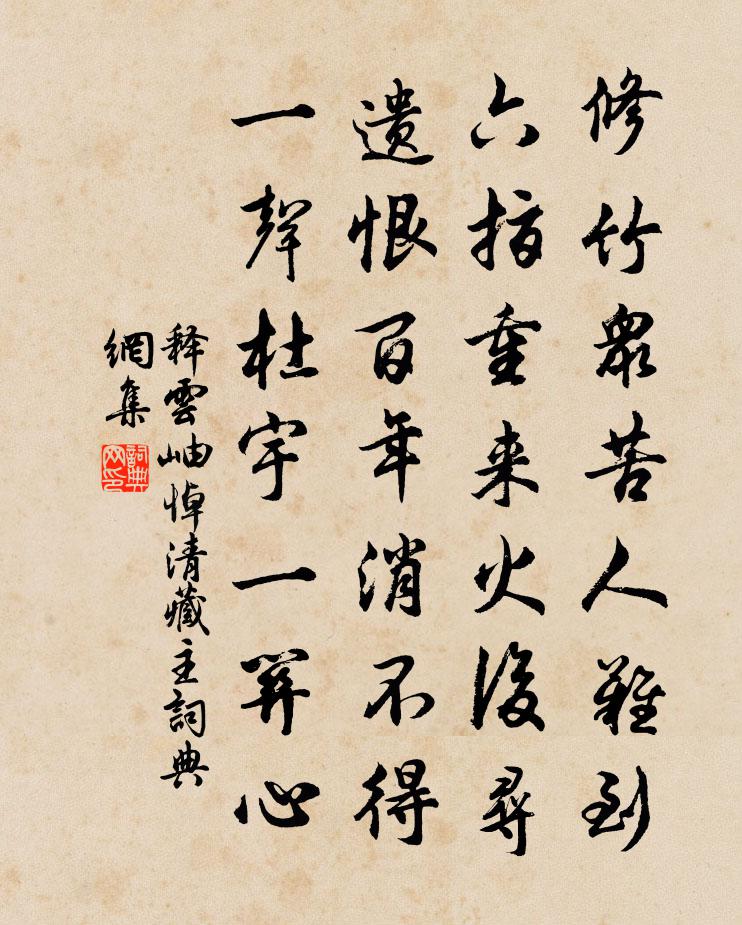 修竹眾苦人難到
六指重来火後尋
遗恨百年消不得
一聲杜宇一關心
释雲岫悼清藏主詞典
網集
詞典
网印